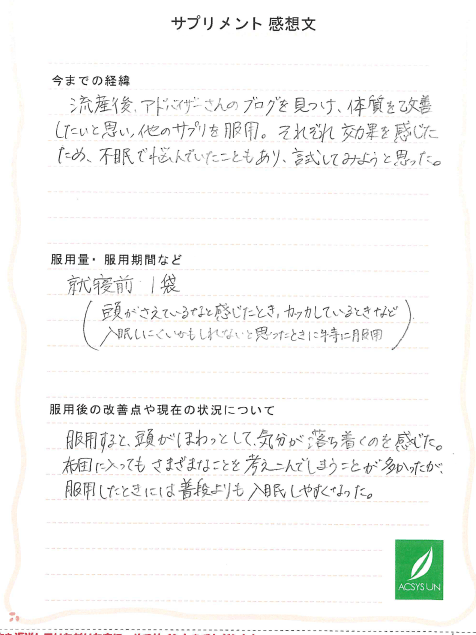 サプリメント 感想文
今までの経緯
流産後、アドバイザーさんのブログを見つけ、体質を改善
したいと思い、他のサプリを服用。それぞれ効果を感じた
ため、不眠で悩んでいたこともあり、試してみようと思った。
服用量・服用期間など
就寝前 1袋
(頭がさえているなと感じたとき、カッカしているときなど
入眠しにくいかもしれないと思ったときに特に服用)
服用後の改善点や現在の状況について
服用すると、頭がほわっとして、気分が落ち着くのを感じた。
布団に入っても さまざまなことを考えこんでしまうことが多かったが、
服用したときには普段よりも入眠しやすくなった。
ACSYS UN